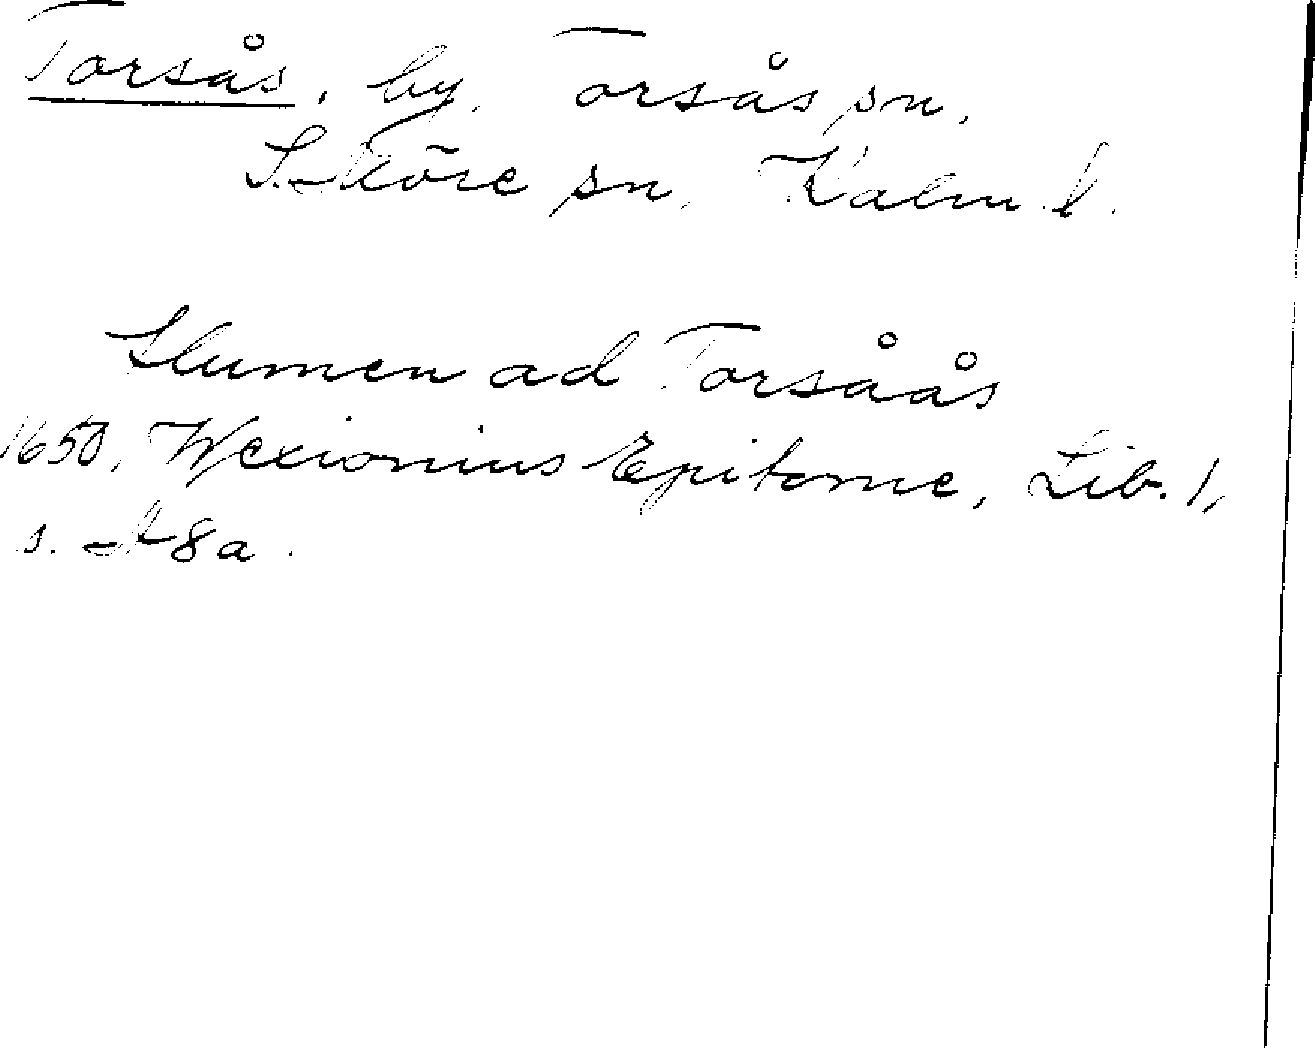 Torsås, by, Torsås sn,
S. Möre sn, Kalm. l.
Flumen ad Torsåås
1650, Wexionius Epitome, Lib. 1,
s. A 8 a.